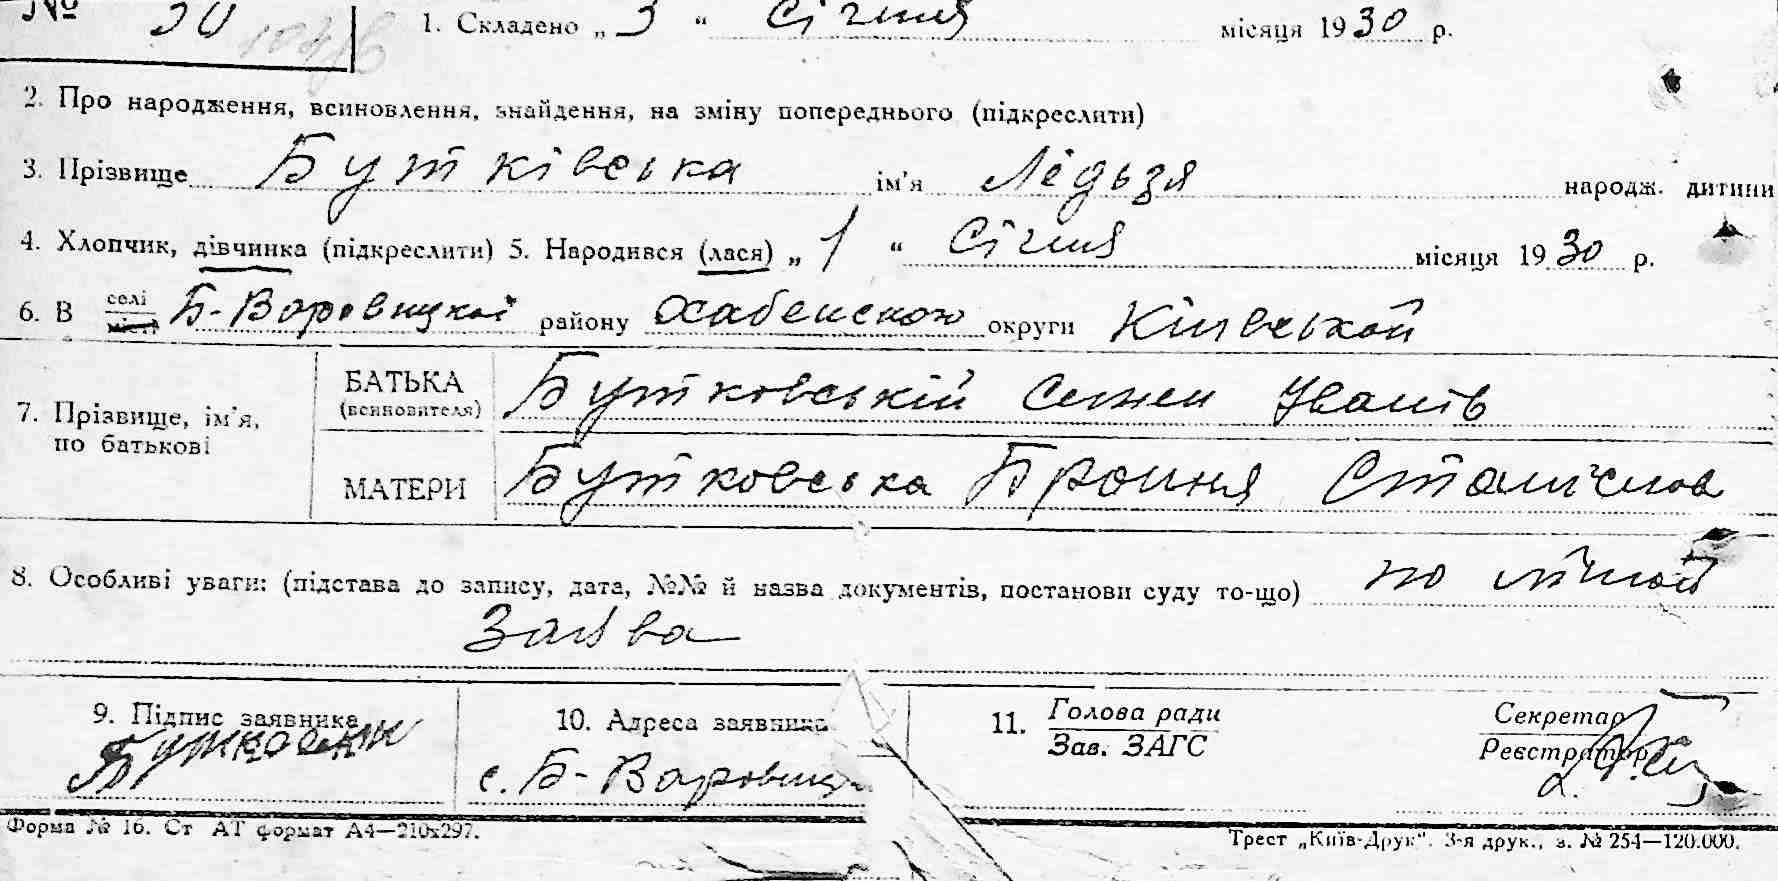 № 30 1. Складено „ 3 “ Січня місяця 1930 р.
2. Про народження, всиновлення, знайдення, на зміну попереднього (підкреслити)
3. Прізвище Бутківська ім’я Лєдьзя народж. дитини
4. Хлопчик, дівчинка (підкреслити) 5. Народився (лася) „ 1 “ Січня місяця 1930 р.
6. В селі місті Б-Варовицкої району Хабенского округи Кіивськой
7. Прізвище, ім’я, по батькові
БАТЬКА (всиновителя) Бутковській Семен Іванів
МАТЕРИ Бутковська Броння
8. Особливі уваги: (підстава до запису, дата, №№ й назва документів, постанови суду то-що) по
Заява
9. Підпис заявника 10. Адреса заявника 11. Голова ради Секретар
Зав. ЗАГС Реєстратор
с. Б-Варовиця
Форма № 16. Ст АТ формат А4—210х297. Трест „Київ-Друк“. 3-я друк., з. № 254—120.000.